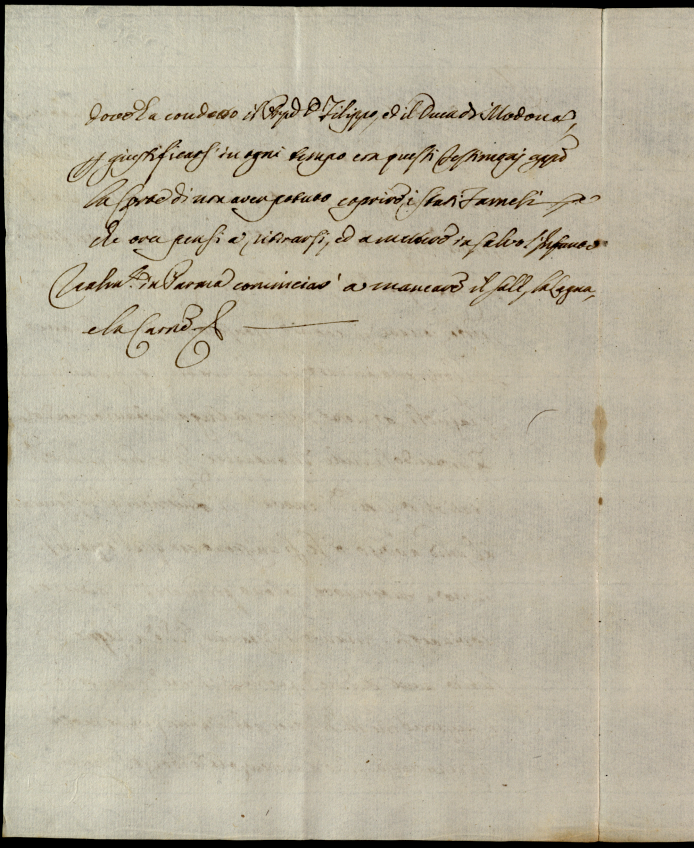 dove ha condotto il Re D. Filippo, ed il Duca di Modona,
p giustificarsi in ogni tempo con questi testimonj app.o
la Corte di non aver potuto coprire i Stati Farnesi
che ora pensi a ritirarsi, ed a mettere in salvo l'Infante
Realm.te in Parma cominciavᵃ a mancare il sall, la Legna,
e la Carne